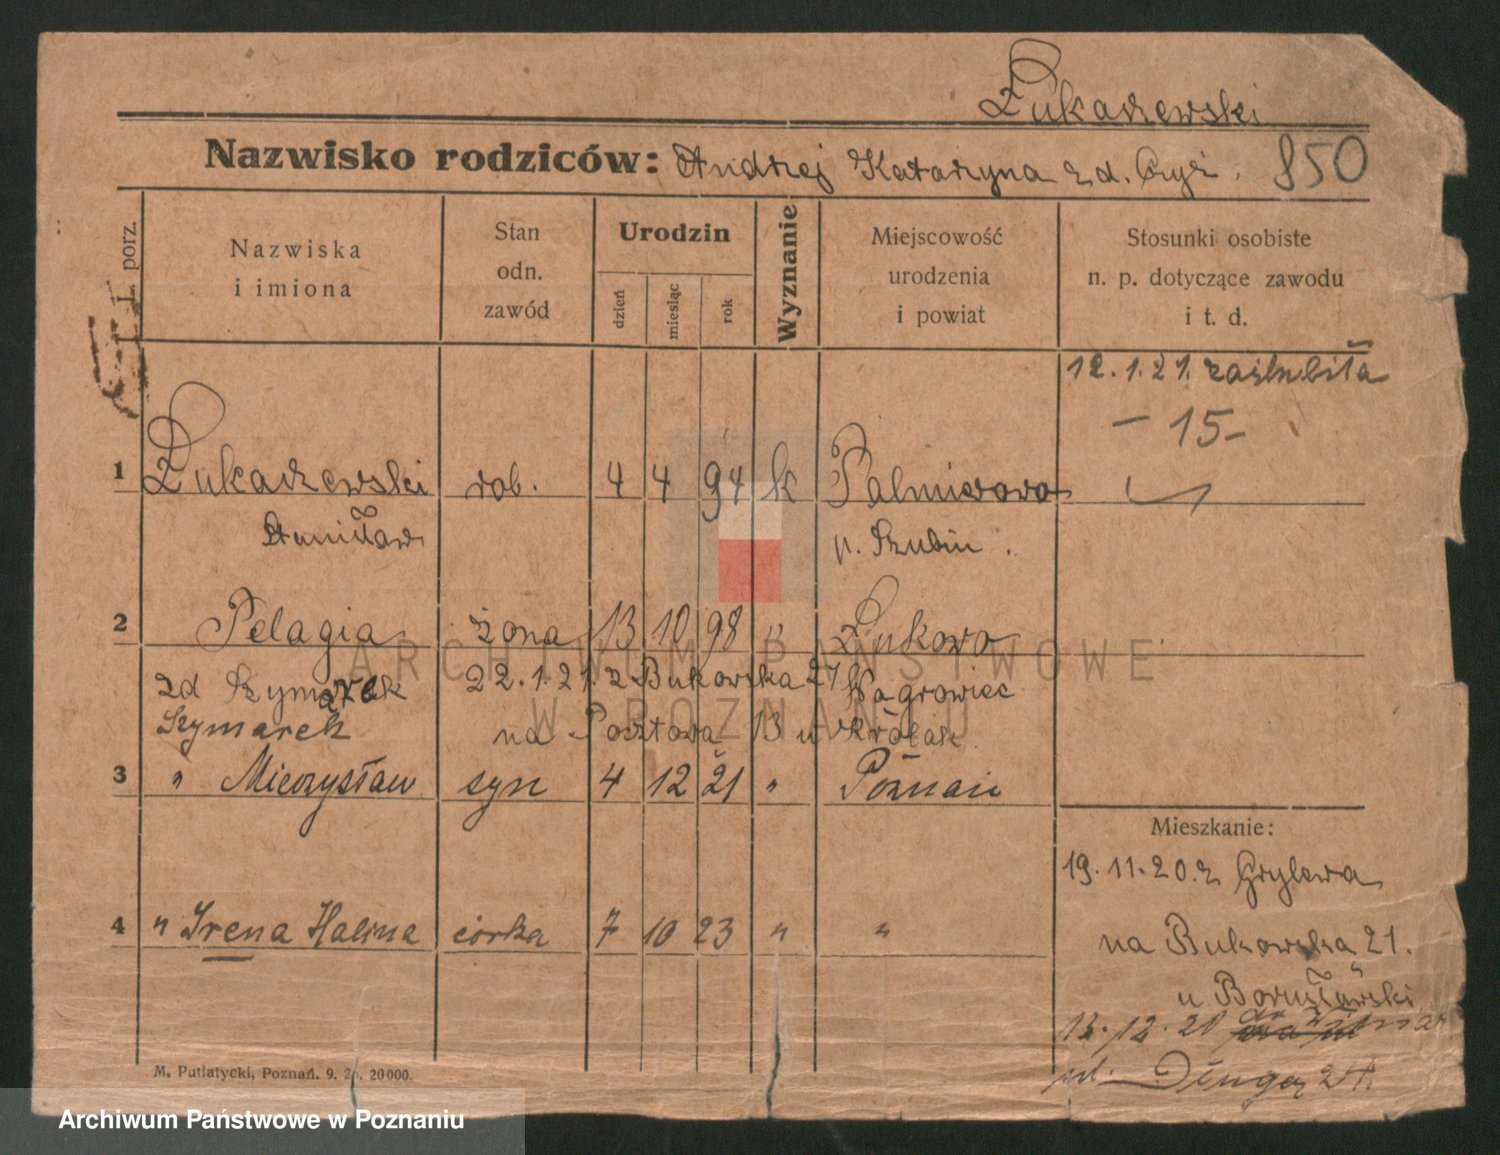 Łukaszewski
Nazwisko rodziców: Andrzej Katarzyna z d. Czyż.
850
L. porz.
Nazwiska
i imiona
Stan
odn.
zawód
Urodzin
dzień
miesiąc
rok
Wyznanie
Miejscowość
urodzenia
i powiat
Stosunki osobiste
n. p. dotyczące zawodu
i t. d.
12.1.21. zaślubiła
- 15 -
1 Łukaszewski rob. 4 4 94 k Palmierowo
Stanisław p. Szubin.
2 Pelagia żona 13 10 98 " Łukowo
zd Szymarek 22.1.21 z Bukowska 21 Wągrowiec
Szymarek na Pocztowa 13 u Królak
3 " Mieczysław syn 4 12 21 " Poznań
Mieszkanie:
19.11.20 z Grylewa
4 " Irena Halina córka 7 10 23 " "
na Bukowska 21.
u
13.12.20
Długa
M. Putiatycki, Poznań. 9. 20000.
ARCHIWUM PAŃSTWOWE
W POZNANIU
Archiwum Państwowe w Poznaniu